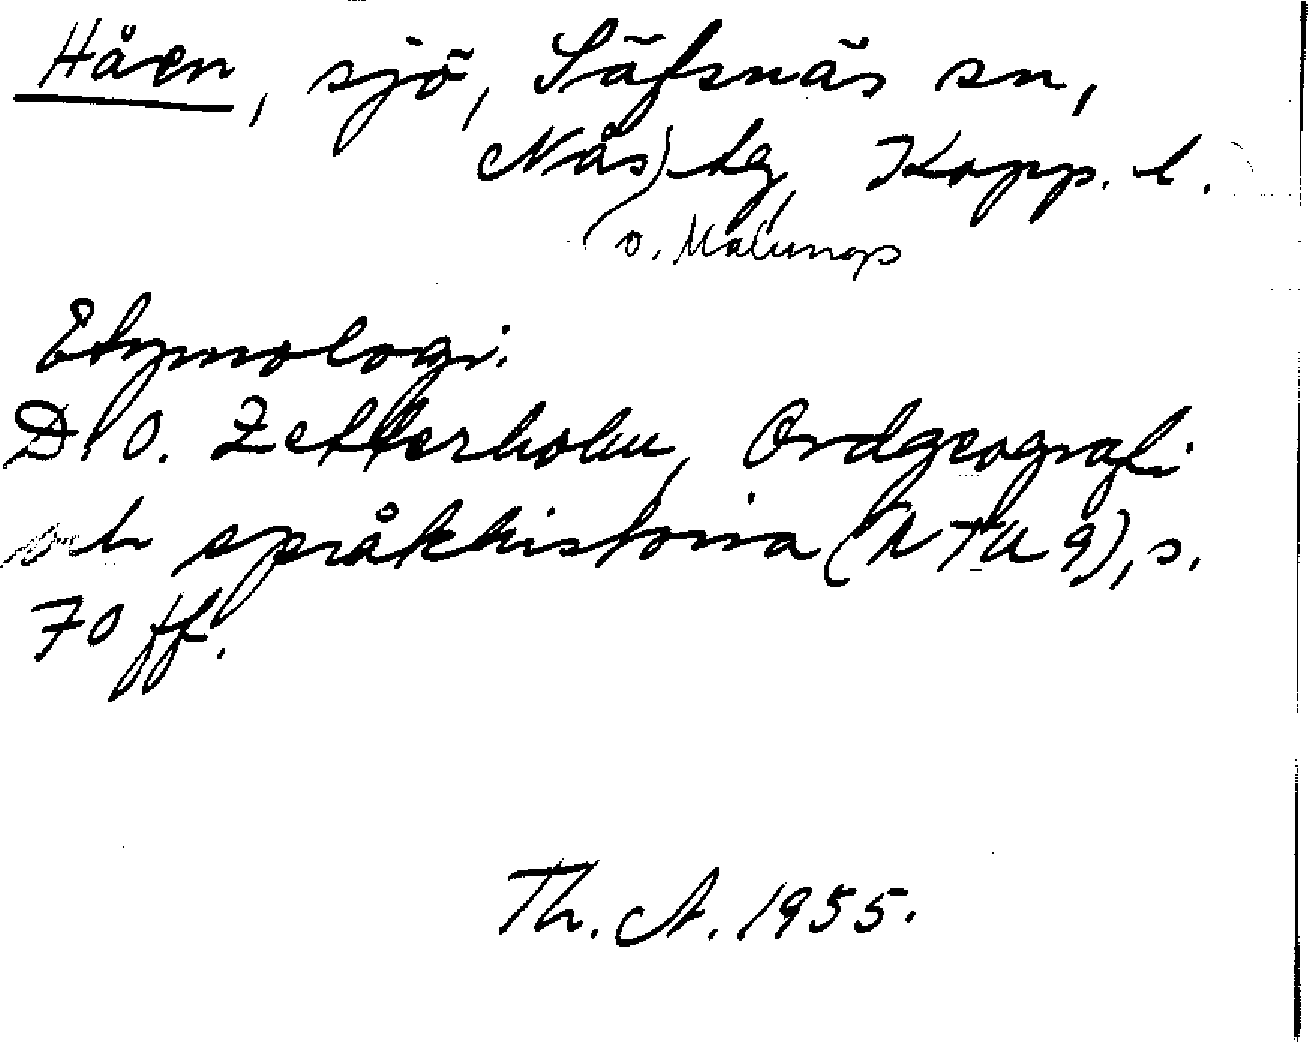 Håen, sjö, Säfsnäs sn,
Nås) hg, Kopp. l.
(o. Malungs
Etymologi.
D. O. Zetterholm, Ordgeografi
och språkhistoria (NTU 9), s.
70 ff.
Th. A. 1955.